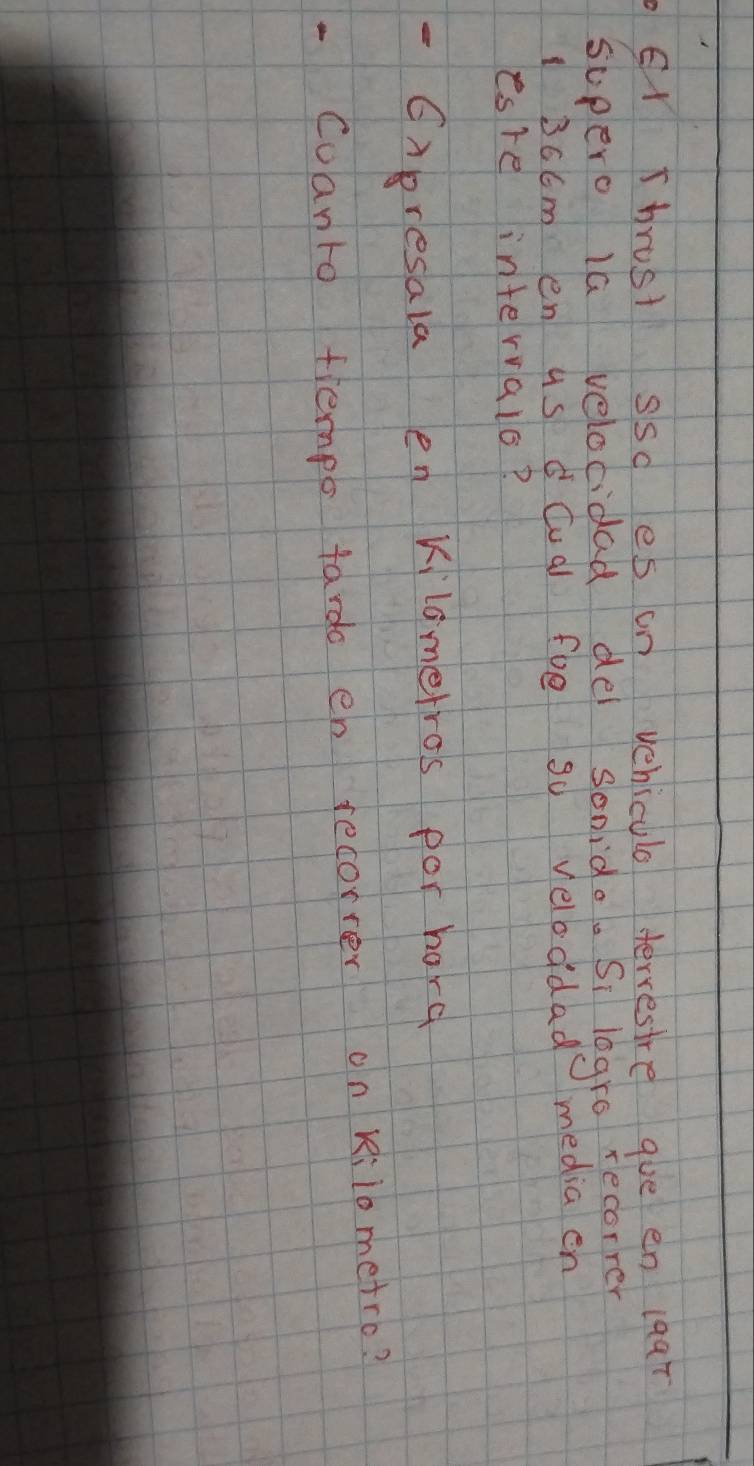 • El Thrust SSC es un vehiculo terrestre que en 1997
supero la velocidad del sonido. Si logro recorrer
1 366m en 4s ¿Cual fue su velocidad media en
este intervalo?
- Expresala en Kilómetros por hora
- Cuanto tiempo tardo en recorrer un Kilometro?